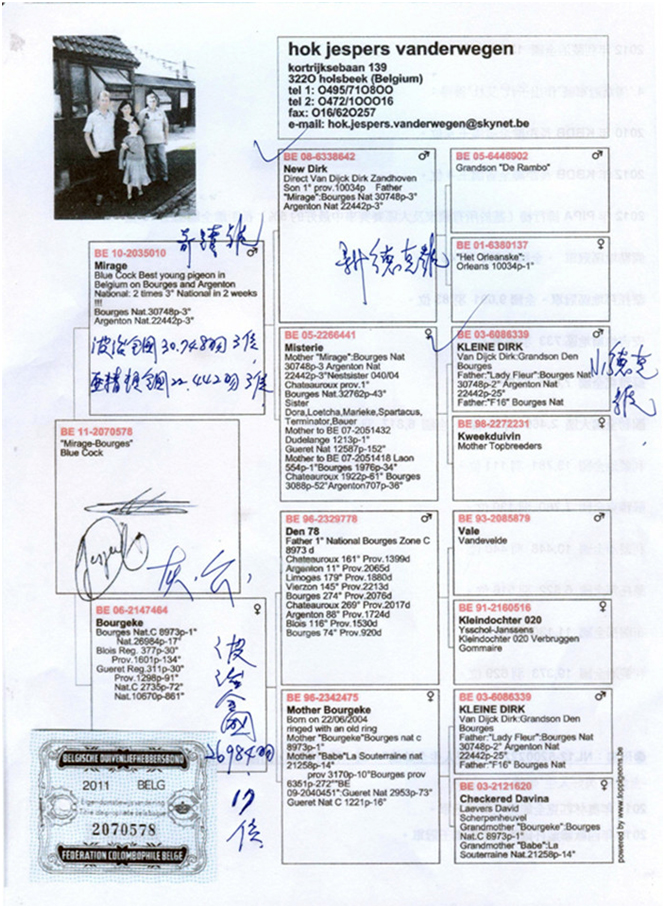 hok jespers vanderwegen
kortrijksebaan 139
3220 holsbeek (Belgium)
tel 1: O495/71O8OO
tel 2: O472/1OOO16
fax: O16/62O257
e-mail: hok.jespers.vanderwegen@skynet.be
BE 11-2070578
"Mirage-Bourges"
Blue Cock
灰.白
BE 10-2035010
Mirage
Blue Cock Best young pigeon in
Belgium on Bourges and Argenton
National: 2 times 3° National in 2 weeks
!!!
Bourges Nat.30748p-3°
Argenton Nat.22442p-3°
波治全國30.748羽3位
亞精頓全國22.442羽3位
奇蹟號
BE 06-2147464
Bourgeke
Bourges Nat.C 8973p-1°
Nat.26984p-17°
Blois Reg.377p-30°
Prov.1601p-134°
Gueret Reg.311p-30°
Prov.1298p-91°
Nat.C 2735p-72°
Nat.10670p-861°
波治全國
26984羽
17
位
BE 08-6338642
New Dirk
Direct Van Dijck Dirk Zandhoven
Son 1° prov.10034p Father
"Mirage":Bourges Nat 30748p-3°
Argenton Nat 22442p-3°
新德克號
BE 05-2266441
Misterie
Mother "Mirage":Bourges Nat
30748p-3 Argenton Nat
22442p-3°Nestsister 040/04
Chateauroux prov.1°
Bourges Nat.32762p-43°
Sister
Dora,Loetcha,Marieke,Spartacus,
Terminator,Bauer
Mother to BE 07-2051432
Dudelange 1213p-1°
Gueret Nat 12587p-152°
Mother to BE 07-2051418 Laon
554p-1°Bourges 1976p-34°
Chateauroux 1922p-61° Bourges
3088p-52°Argenton707p-36°
BE 96-2329778
Den 78
Father 1° National Bourges Zone C
8973 d
Chateauroux 161° Prov.1399d
Argenton 11° Prov.2065d
Limogas 179° Prov.1880d
Vierzon 145° Prov.2213d
Bourges 274° Prov.2076d
Chateauroux 269° Prov.2017d
Argenton 88° Prov.1724d
Blois 116° Prov.1530d
Bourges 74° Prov.920d
BE 96-2342475
Mother Bourgeke
Born on 22/06/2004
ringed with an old ring
Mother "Bourgeke"Bourges nat c
8973p-1°
Mother "Babe"La Souterraine nat
21258p-14°
prov 3170p-10°Bourges prov
6351p-272°"BE
09-2040451":Gueret Nat 2953p-73°
Gueret Nat C 1221p-16°
BE 05-6446902
Grandson "De Rambo"
BE 01-6380137
"Het Orleanske"
Orleans 10034p-1°
BE 03-6086339
KLEINE DIRK
Van Dijck Dirk:Grandson Den
Bourges
Father:"Lady Fleur":Bourges Nat
30748p-2° Argenton Nat
22442p-25°
Father:"F16" Bourges Nat
小德克
號
BE 98-2272231
Kweekduivin
Mother Topbreeders
BE 93-2085879
Vale
Vandevelde
BE 91-2160516
Kleindochter 020
Ysschol-Janssens
Kleindochter 020 Verbruggen
Gommaire
BE 03-6086339
KLEINE DIRK
Van Dijck Dirk:Grandson Den
Bourges
Father:"Lady Fleur":Bourges Nat
30748p-2° Argenton Nat
22442p-25°
Father:"F16" Bourges Nat
BE 03-2121620
Checkered Davina
Laevers David
Scherpenheuvel
Grandmother "Bourgeke":Bourges
Nat.C 8973p-1°
Grandmother "Babe":La
Souterraine Nat.21258p-14°
BELGISCHE DUIVENLIEFHEBBERSBOND
2011 BELG
2070578
FEDERATION COLOMBOPHILE BELGE